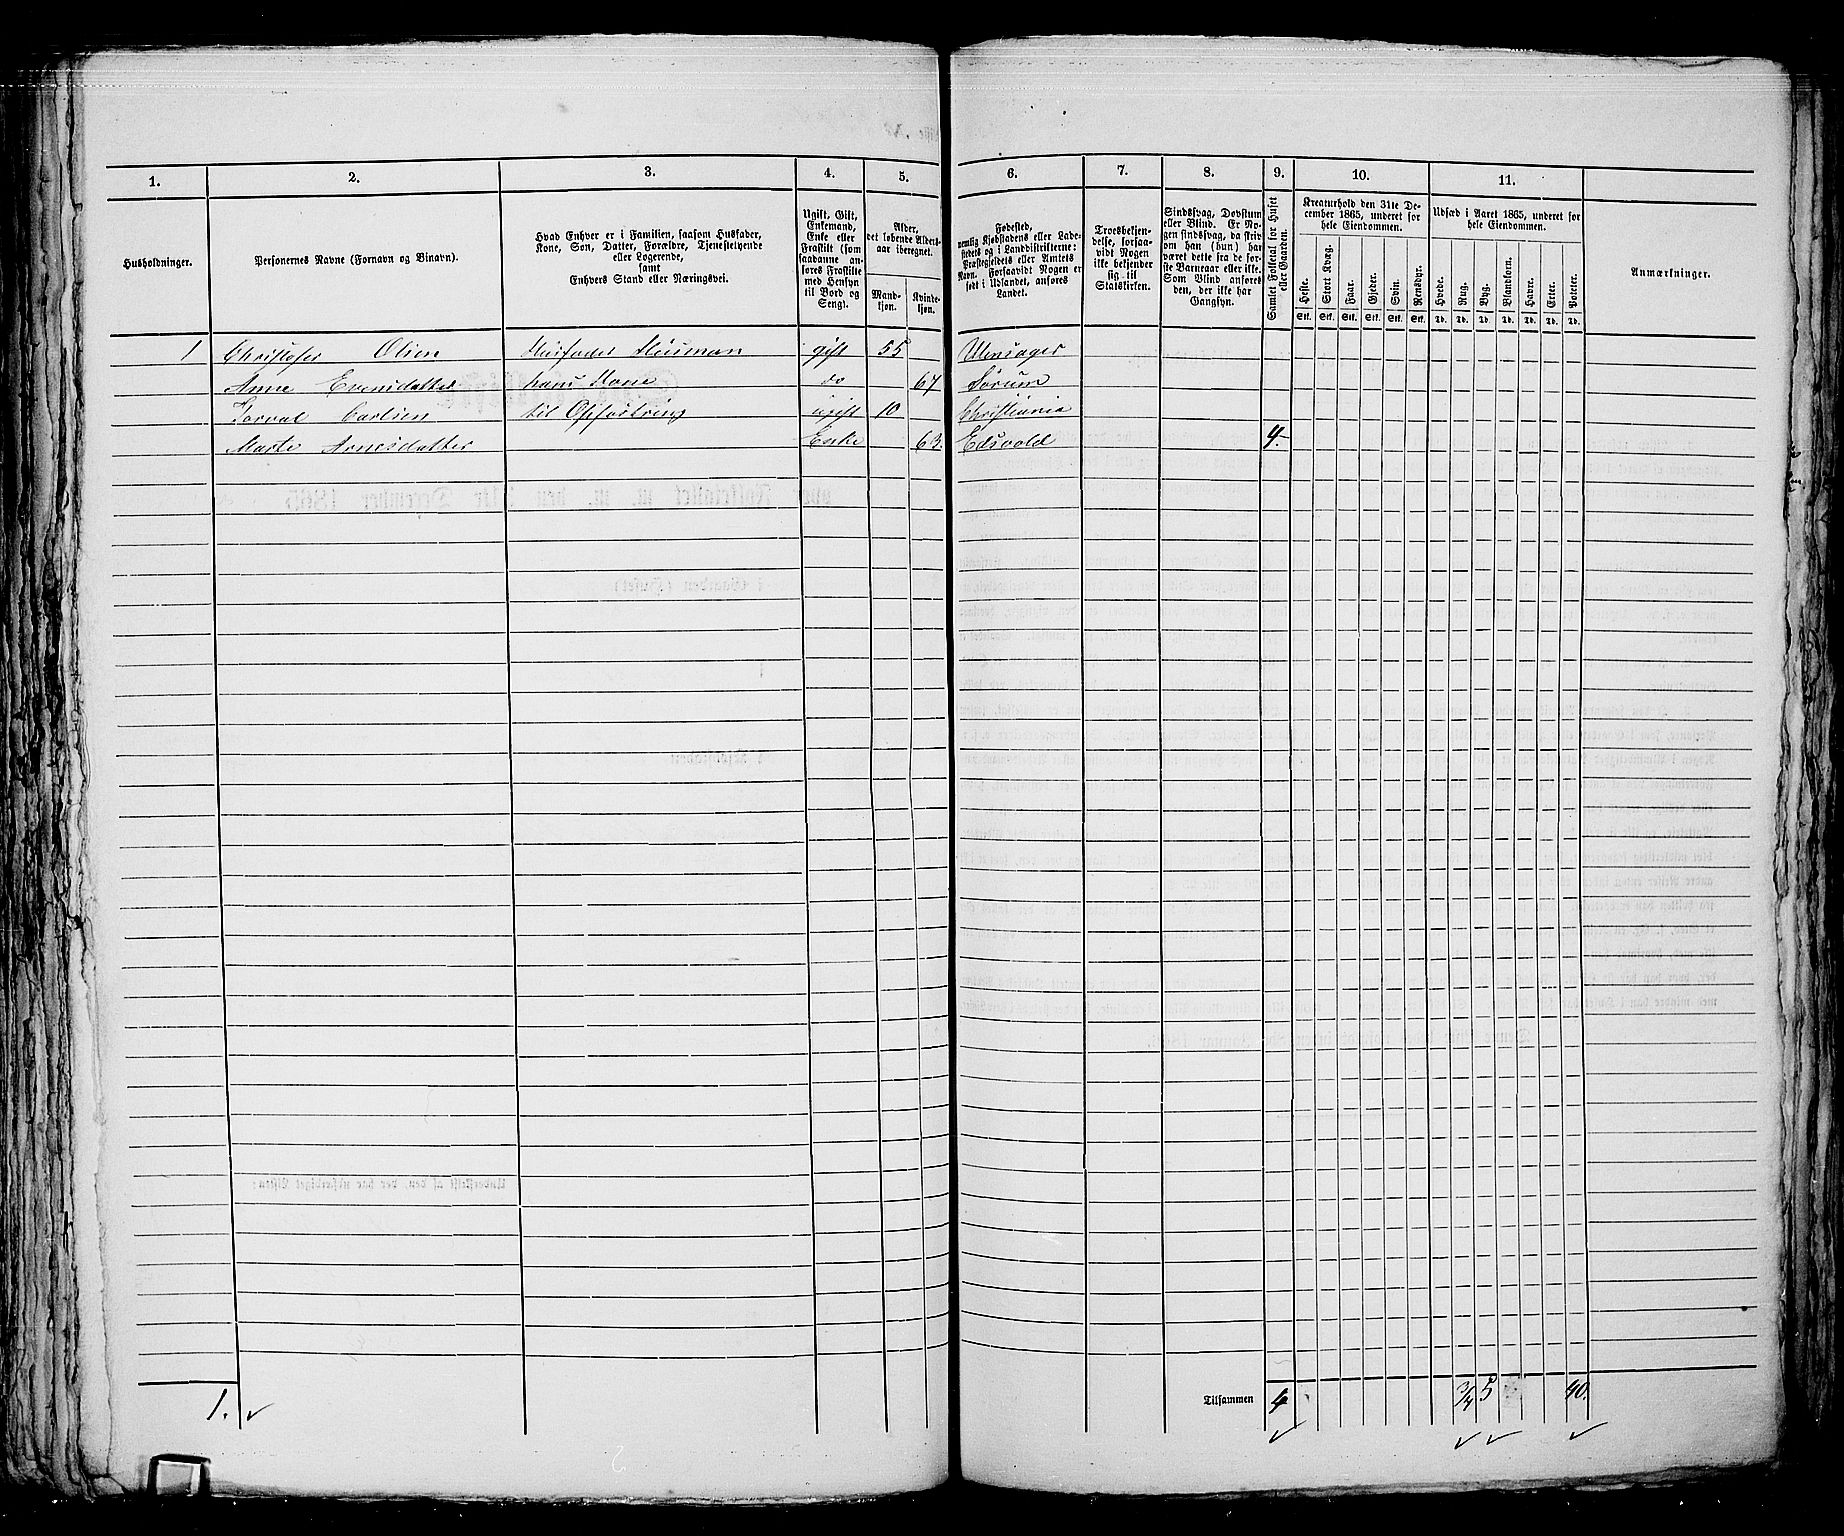 1. 2. 3. 4. 5. 6. 7. 8. 9. 10. 11.
Husholdninger.
Personernes Navne (Fornavn og Binavn).
Hvad Enhver er i Familien, saasom Husfader,
Kone, Søn, Datter, Forældre, Tjenestetyende
eller Logerende,
samt
Enhvers Stand eller Næringsvei.
Ugift, Gift,
Enkemand,
Enke eller
Fraskilt (som
saadanne an-
føres Fraskilte
med Hensyn
til Bord og
Seng).
Alder,
det løbende Alders-
aar iberegnet.
Mand-
kjøn.
Kvinde-
kjøn.
Fødested,
nemlig Kjøbstadens eller Lade-
stedets og i Landdistrikterne:
Præstegjeldets eller Amtets
Navn. Forsaavidt Nogen er
født i Udlandet, anføres
Landet.
Troesbekjen-
delse, forsaa-
vidt Nogen
ikke bekjender
sig til
Statskirken.
Sindssvag, Døvstum
eller Blind. Er No-
gen sindssvag, da skriv
om han (hun) har
været dette fra de før-
ste Barneaar eller ikke.
Som Blind anføres
den, der ikke har
Gangsyn.
Samlet Folketal for Huset
eller Gaarden.
Kreaturhold den 31te De-
cember 1865, underet for
hele Eiendommen.
Heste. Stort Kvæg. Faar. Gjeder. Svin. Rensdyr.
Stk. Stk. Stk. Stk. Stk. Stk.
Udsæd i Aaret 1865, underet for
hele Eiendommen.
Hvede. Rug. Byg. Blandkorn. Havre. Erter. Poteter.
Td. Td. Td. Td. Td. Td. Td.
Anmærkninger.
1 Christofer Olsen Husfader Husman gift 55 Ulensager
Anne Evensdatter hans Kone do 67 Sørum
Torval Carlsen til Opfostring ugift 10 Christiania
Marte Arnesdatter Enke 63. Edsvold 4.
1. Tilsammen 4 3/4 5 40.